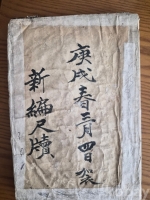 庚戌春三月四日裂
新編尺牘